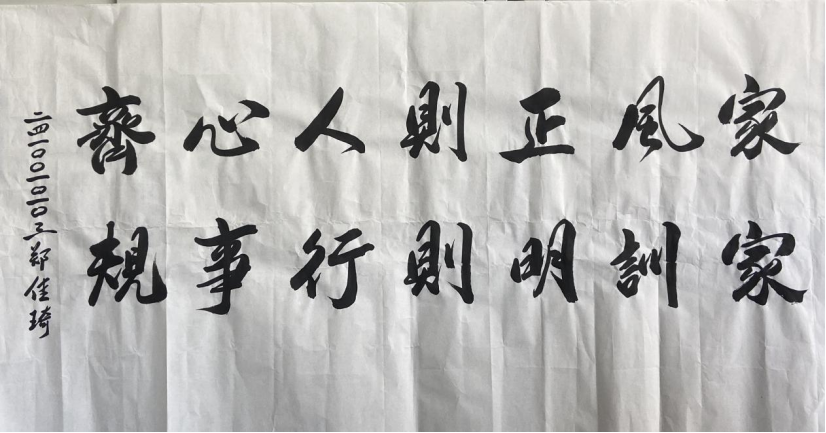 家風正則人心齊
家訓明則行事規
二四一〇〇一〇一〇三鄭佳琦